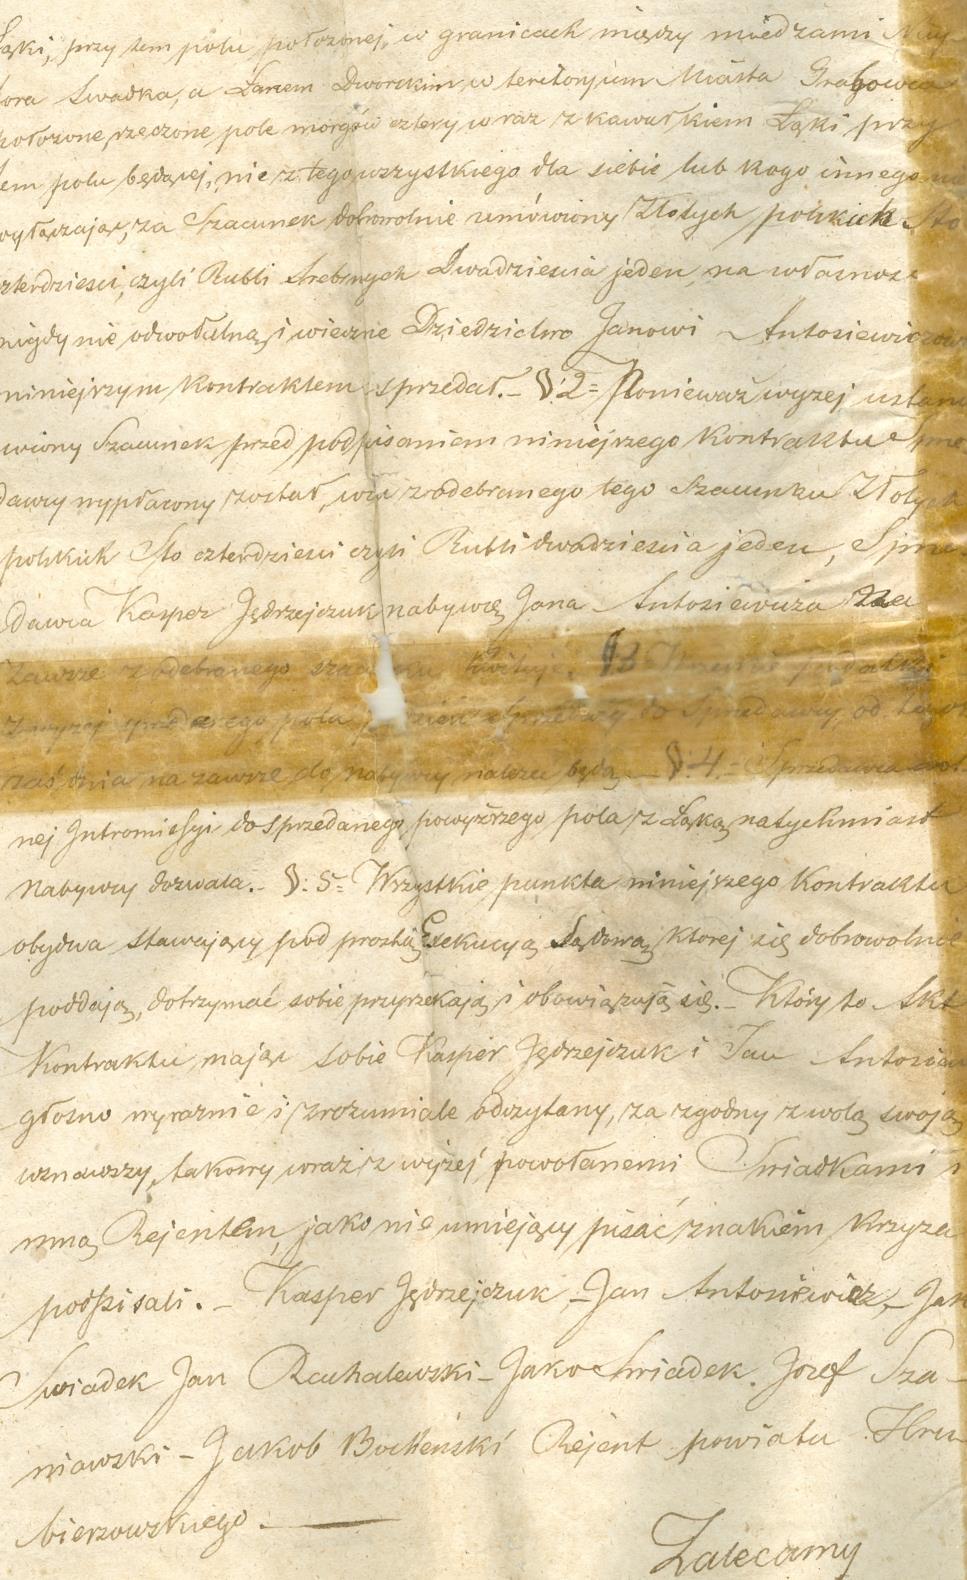 Łąki, przy tem polu położonej, w granicach między miedzami
tora Swadka, a Łanem Dworskim w teritoryum Miasta Grabowca
położone, rzeczone pole morgów cztery wraz z kawałkiem Łąki przy
tem polu będącej, nic z tego wszystkiego dla siebie lub kogo innego nie
wyłączając, za Szacunek dobrowolnie umówiony Złotych polskich Sto
czterdzieści, czyli Rubli Srebrnych Dwadzieścia jeden, na własność
nigdy nie odwołalną, i wieczne Dziedzictwo Janowi Antosiewiczowi
niniejszym Kontraktem sprzedał. – §: 2 = Ponieważ wyzej ustano
wiony Szacunek przed podpisaniem niniejszego Kontraktu Sprze
dawcy wypłacony został, więc z odebranego tego Szacunku Złotych
polskich Sto czterdzieści czyli Rubli dwadzieścia jeden, Sprze
dawca Kasper Jędrzejczuk nabywcę Jana Antosiewicza na
zawsze z odebranego szacunku kwituje. § 3 podatki
z wyzej sprzedanego pola Sprzedarzy do Sprzedawcy, od tego
zaś dnia na zawsze do nabywcy należeć będą. – §: 4. = Sprzedawca wol
nej Intromissyi do sprzedanego powyższego pola z Łąką natychmiast
Nabywcy dozwala. – §: 5 = Wszystkie punkta niniejszego Kontraktu
obydwa stawający pod prostą Exekucyą Sądową, ktorej się dobrowolnie
poddają, dotrzymać sobie przyrzekają i obowiązują się. – Który to Akt
Kontraktu, mając sobie Kasper Jędrzejczuk i Jan Antosiewicz
głosno wyraznie i zrozumiale odczytany, za zgodny z wolą swoją
uznawszy, takowy wraz z wyżej powołanemi Swiadkami i
mną Rejentem, jako nie umiejący pisać znakiem krzyza
podpisali. – Kasper Jędrzejczuk – Jan Antosiewicz, – Jako
Swiadek Jan Rachalewski – Jako Swiadek Jozef Sza –
niawski – Jakob Bocheński Rejent powiatu Hru
bieszowskiego –
Zalecamy